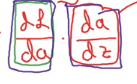 dL/da · da/dz